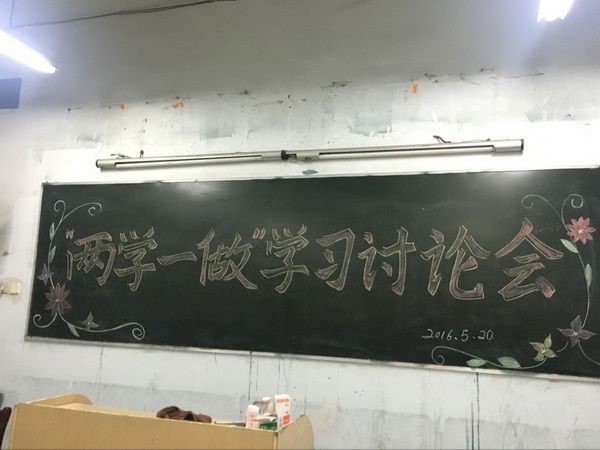 "两学一做"学习讨论会
2016.5.20